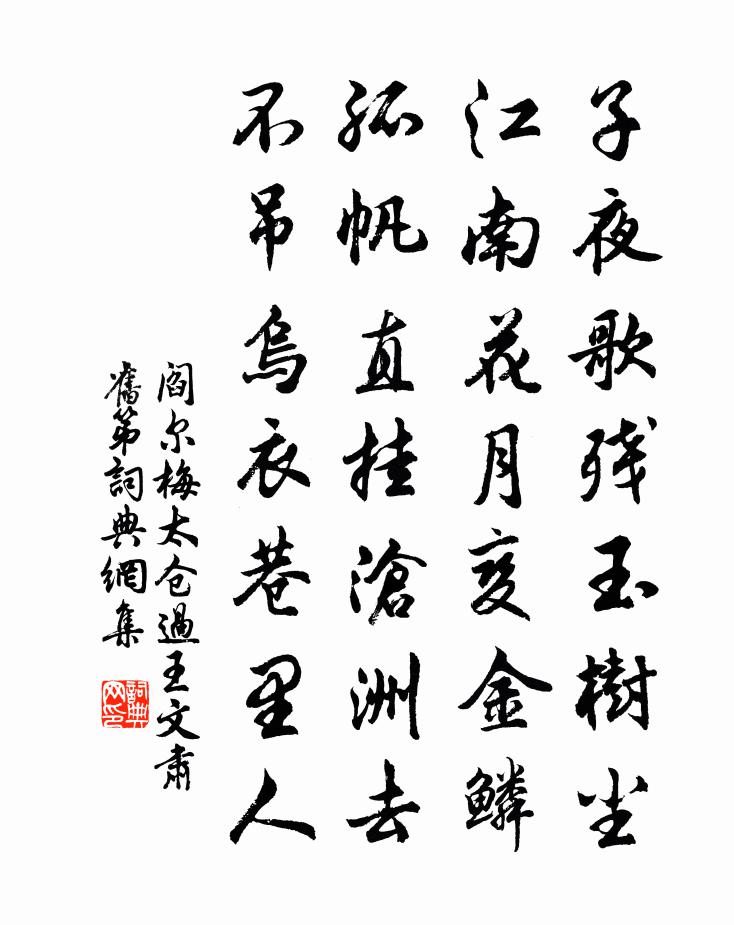 子夜歌残玉樹尘
江南花月变金鳞
孤帆直挂滄洲去
不吊烏衣巷里人
阎尔梅太仓過王文肃
舊第詞典網集
詞典
网印